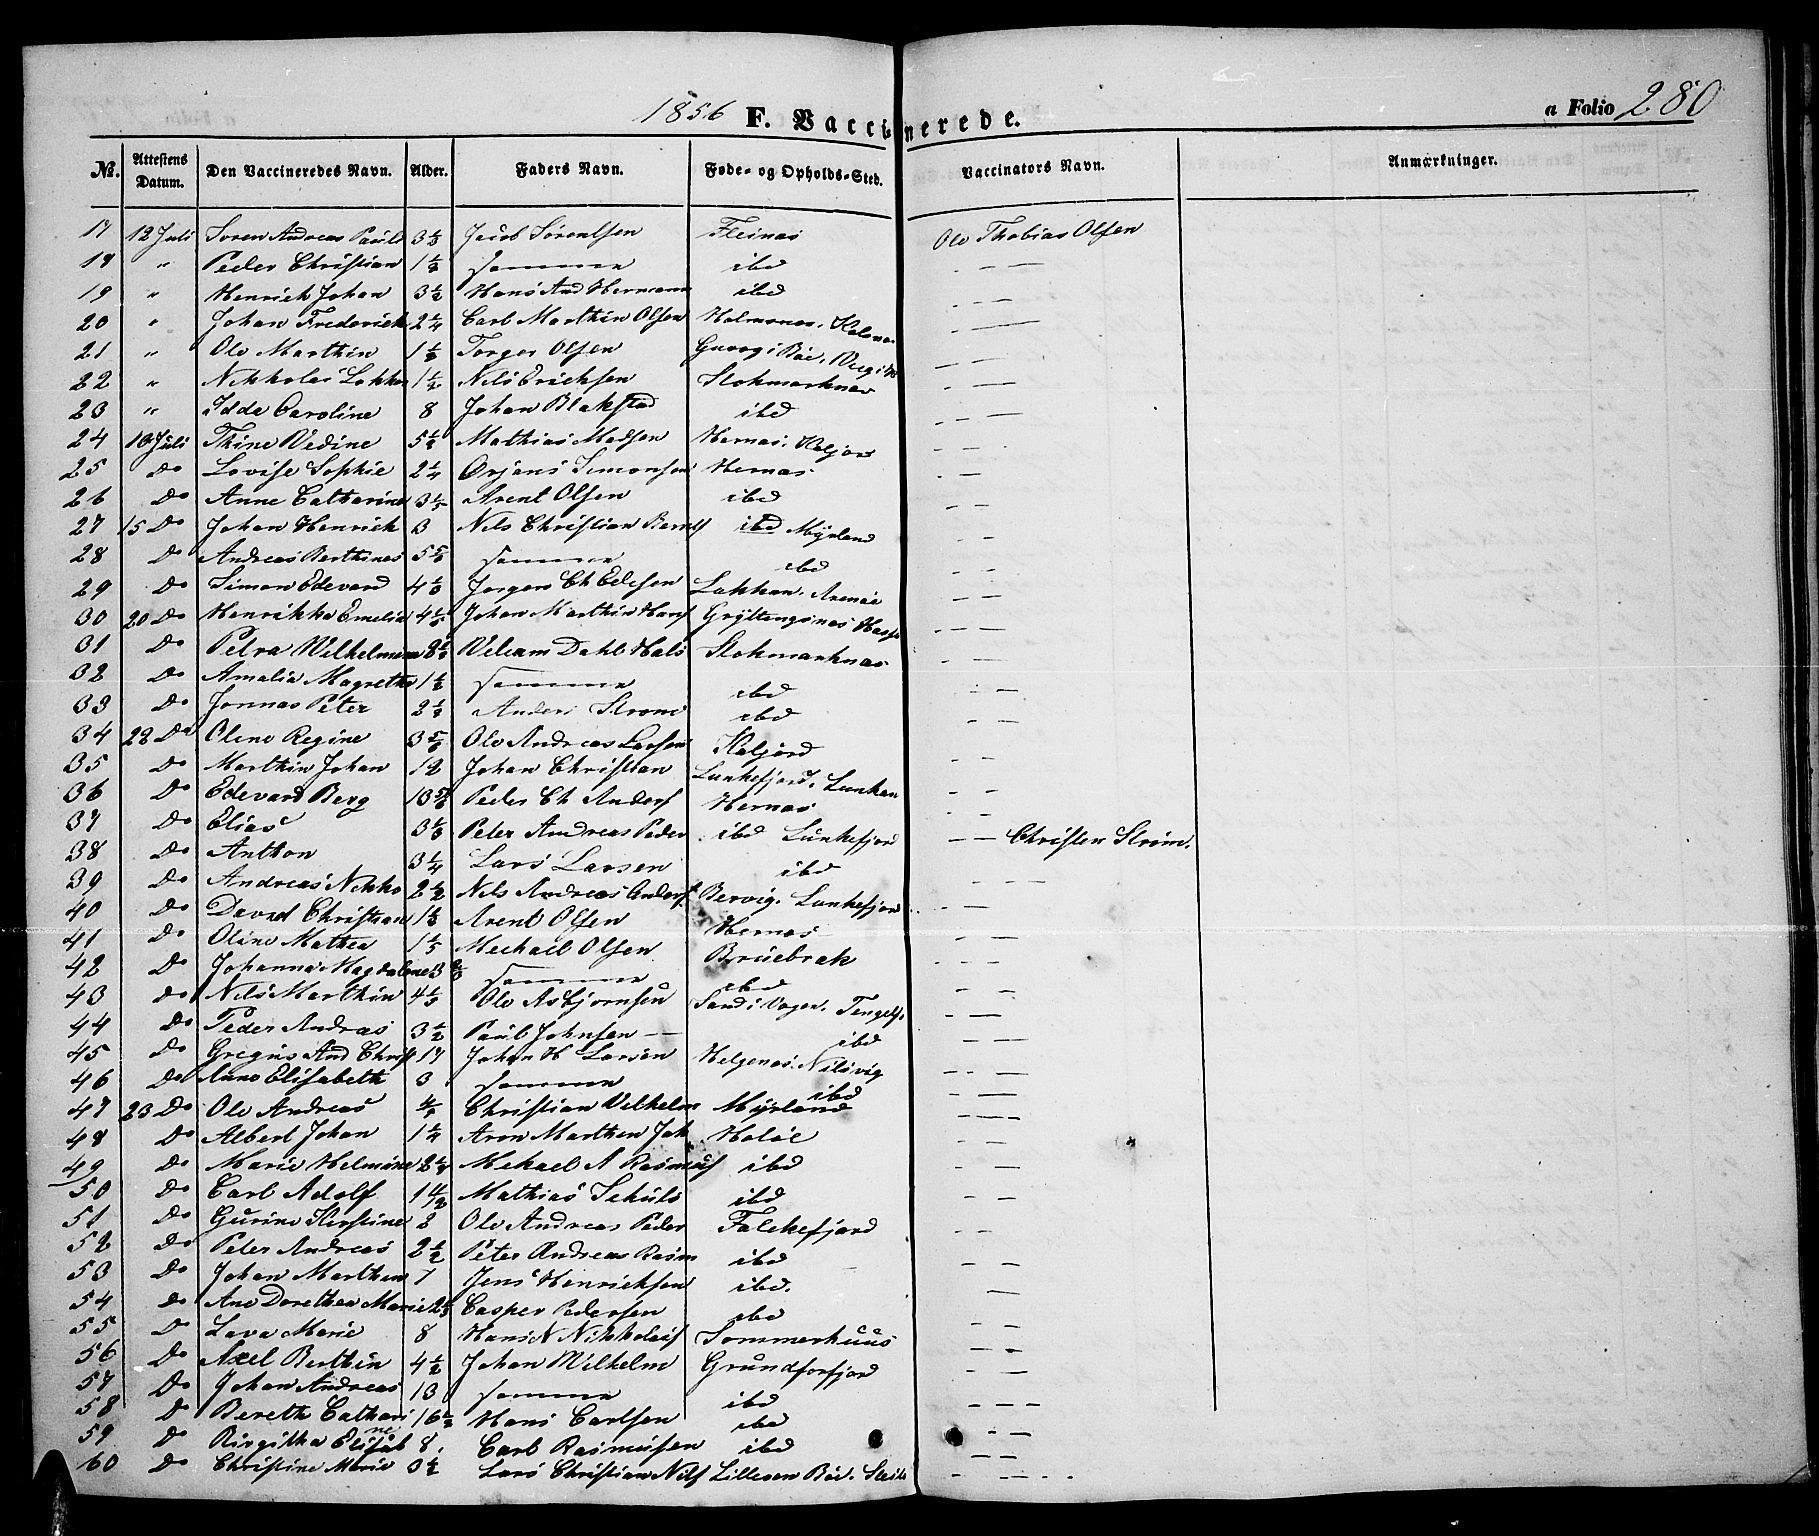 1856 F. Vaccinerede. a Folio 280
No. Attestens Datum. Den Vaccineredes Navn. Alder. Faders Navn. Føde- og Opholds-Sted. Vaccinators Navn. Anmærkninger.
17 12 Juli Soren Andreas Pauls 3 1/3 Jacob Sørentsen Fleinæs Ole Thobias Olsen
18 " Peder Christian 1 1/2 Samme ibd — — —
19 " Henrich Johan 3 1/2 Hans And Hermann ibd — — —
20 " Johan Frederich 2 1/4 Carl Marthin Olsen Holmsnæs.
21 " Ole Marthin 1 1/3 Torger Olsen
22 " Nikholai 1 1/2 Nils Erichsen Stokmarknæs — — —
23 " Idde Caroline 8 Johan Blakstad ibd — —
24 Juli Thine Vedine 5 1/2 Mathias Madsen Hernæs. — —
25 Do Lovise Sophie 2 1/4 Orjans Simonsen Hernæs — —
26 Do Anne Catharine 3 1/5 Arent Olsen ibd — —
27 15 Do Johan Henrich 3 Nils Christian Bernts ibd Myrland — —
28 Do Andreas Berthines 5 Samme ibd — —
29 Do Simon Edevard 4 1/3 Jorgen Ch Edisen — — —
30 20 Do Henrikka Emelia 4 1/5 Johan Marthin Hans Gryttingsnæs — — —
31 Do Petra Wilhelmena 8 Veleam Dahl Hals Stokmarknæs — —
32 Do Amalia Magrethe 1 1/2 Samme ibd — —
33 Do Jonnas Peter 2 1/2 Anders Strøm ibd — —
34 22 Do Oline Regine 3 Ole Andreas Larsen Kaljord — —
35 Do Marthin Johan 12 Johan Christian Lunkefjord. Lunkan — —
36 Do Edevard Berg 13 Peder Ch Anders Hernæs — —
37 Do Elias 3 1/3 Peter Andreas Peder ibd Lunkefjord — — Christen Strøm.
38 Do Anthon 3 1/4 Lars Larsen ibd
39 Do Andreas Nikko 2 1/2 Nils Andreas Anders Bervig. Lunkefjord — — —
40 Do David Christian 1 1/3 Arent Olsen Hernæs — —
41 Do Oline Mathea 1 1/5 Mechael Olsen Bruebrek — —
42 Do Johanna Magdalene 3 Samme ibd — —
43 Do Nils Marthin 4 1/3 Ole Asbjornsen Sand i Vogen. — —
44 Do Peder Andreas 3 1/2 Paul Johnsen — ibd — —
45 Do Gregus And Chris 17 Johan H Larsen Helgenæs. Nilsvig — —
46 Do Anne Elisabeth 3 Samme ibd — —
47 23 Do Ole Andreas Christian Velhelm Myrland — — —
48 Do Albert Johan 1 1/4 Aron Marthen Joh Haløe — —
49 Do Marie Helmine 2 Mekael A Rasmus ibd — —
50 Do Carl Adolf 14 1/2 Mathias Schuls ibd — —
51 Do Gurine Kirstine 2 Ole Andreas Peder Falckefjord — —
52 Do Peter Andreas 2 1/2 Peter Andreas Rasm ibd — —
53 Do Johan Marthen 7 Jens Henrichsen ibd. — —
54 Do Ane Dorethea Marie 2 1/3 Casper Pedersen ibd — —
55 D Lava Marie 8 Hans N Nikkolais Sommerhuus — —
56 Do Axel Berthin 4 1/2 Johan Wilhelm Grundforfjord — —
57 Do Johan Andreas 13 Samme ibd — —
58 D Bereth Cathari 16 1/2 Hans Carlsen ibd — — —
ne
59 D Birgitha Elisab 8. Carl Rasmussen ibd — —
60 Do Christine Marie 3 1/2 Lars Christian Nils Lilleøen Bøe. — —